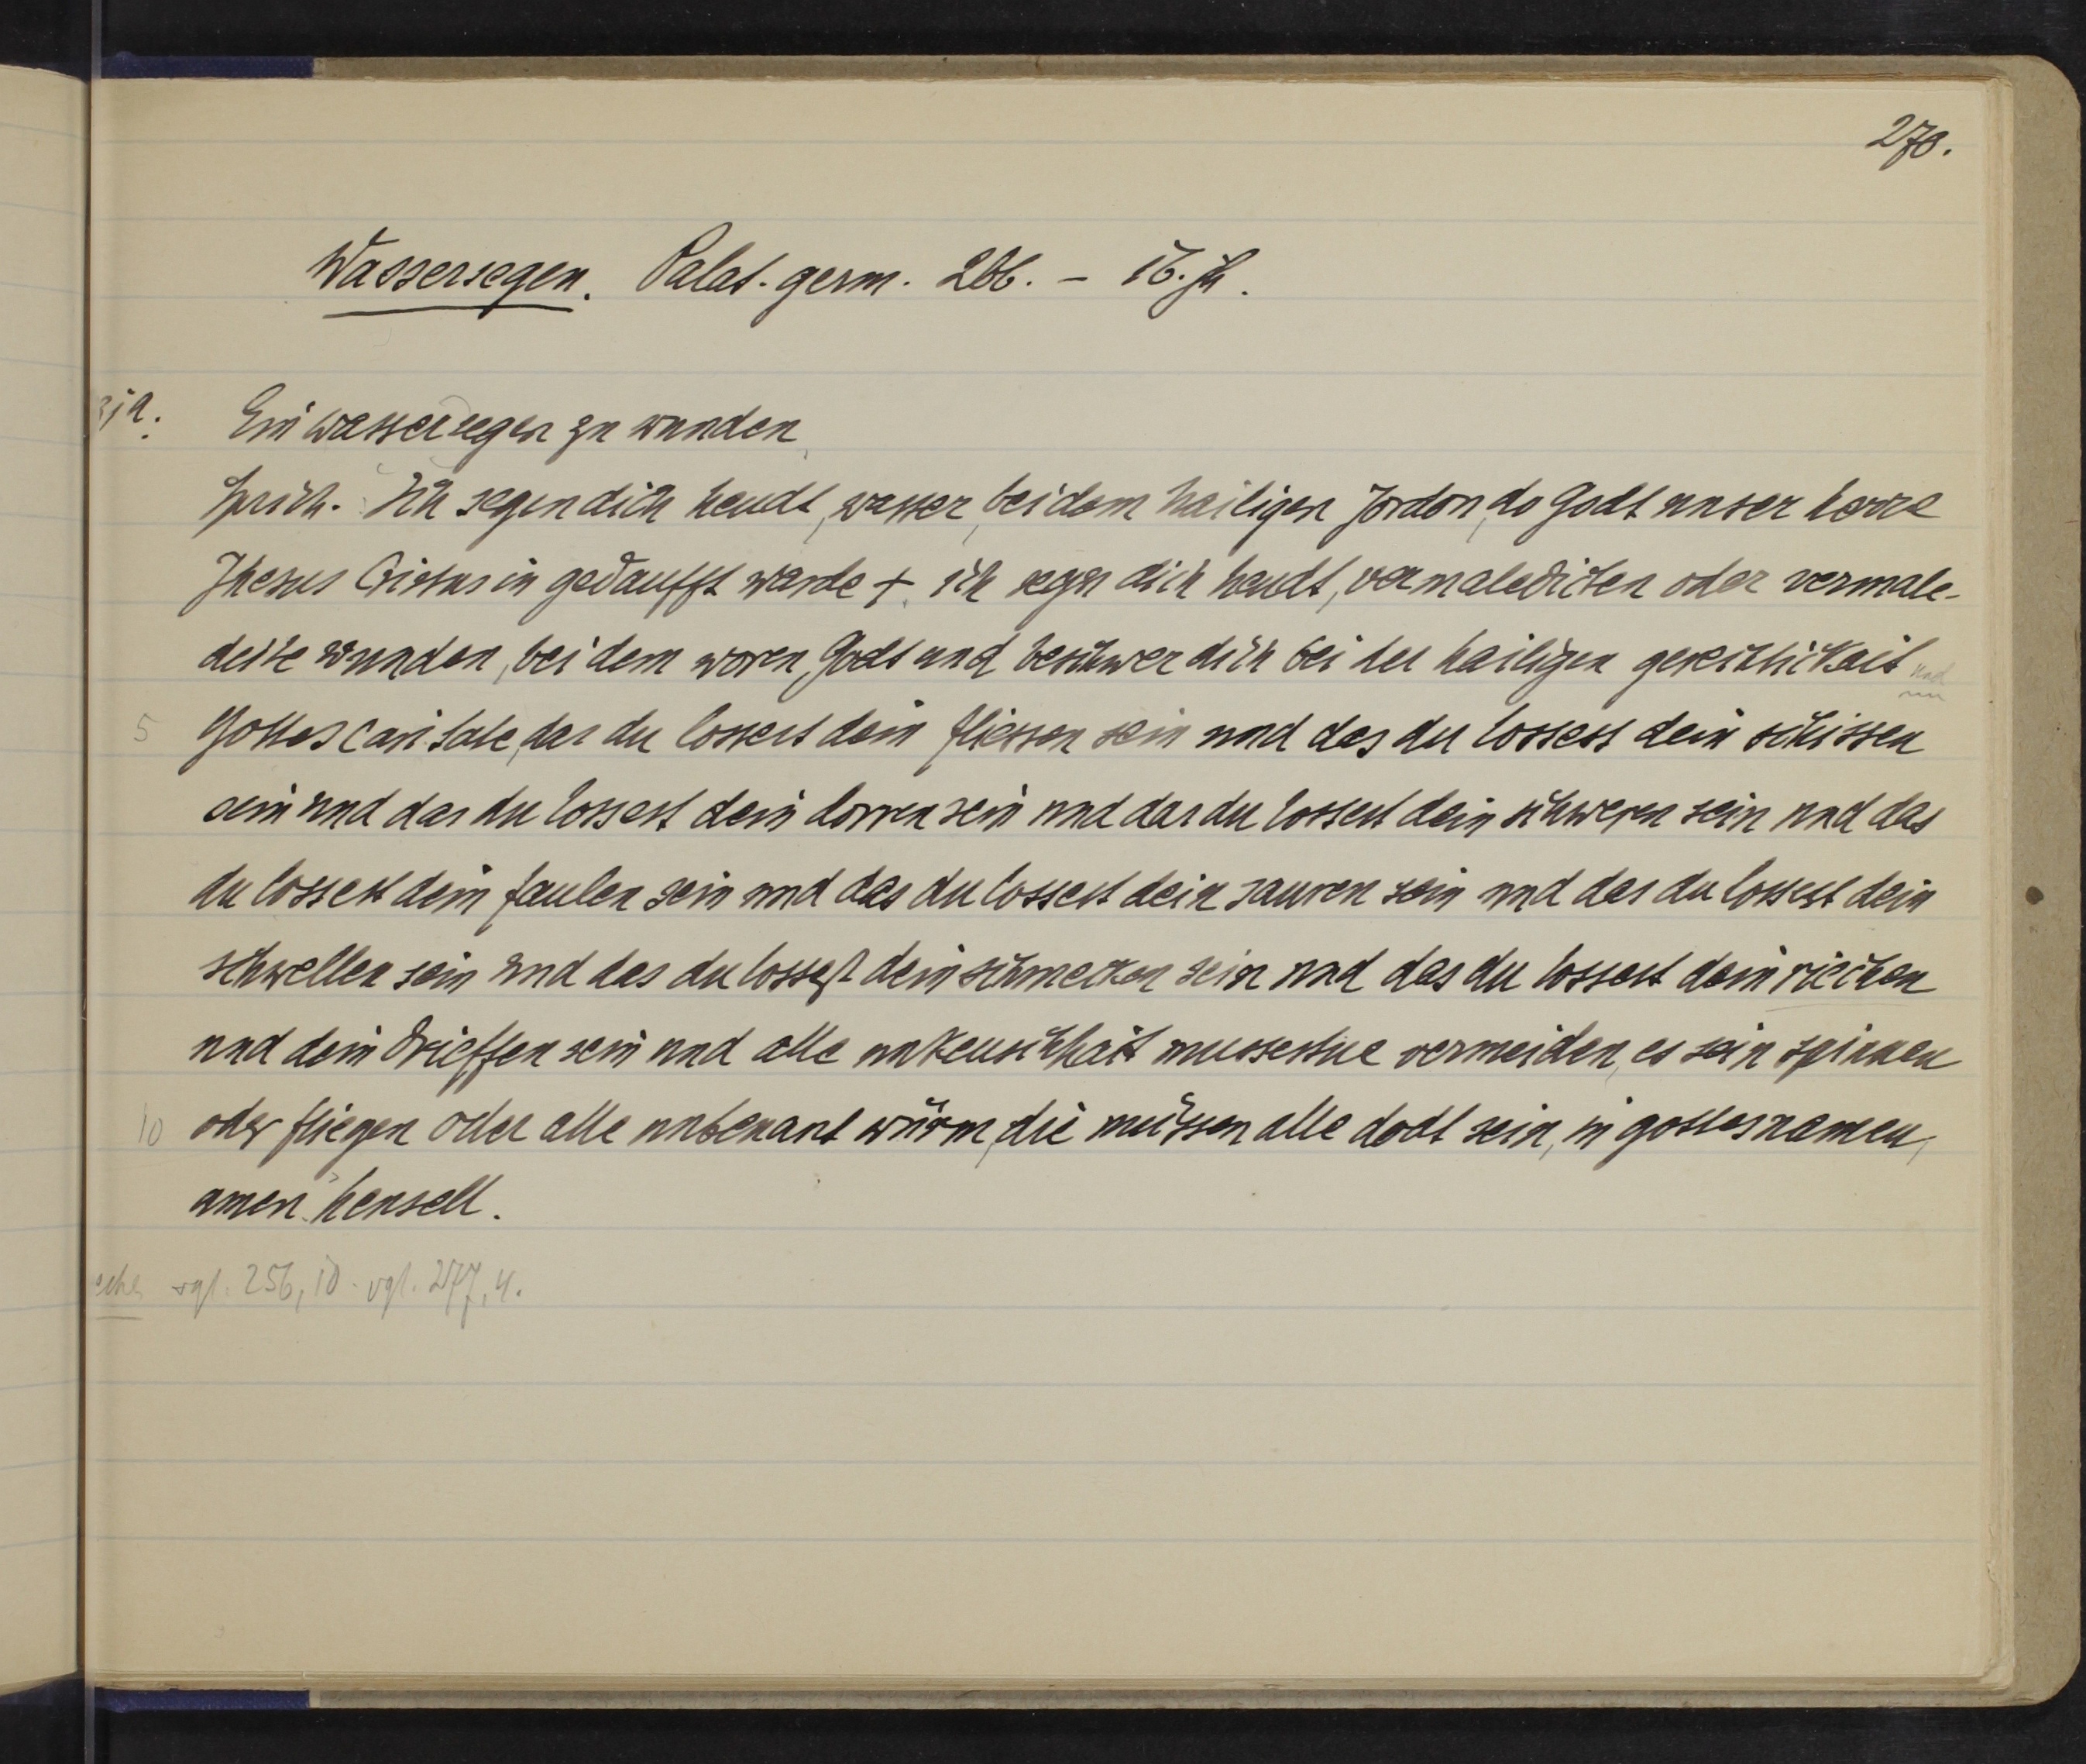 270.
Wassersegen. Palat. germ. 266. – 16. Jh.
31a. Ein wassersegen zu wunden
Sprich. Ich segen dich heudt, wasser, bei dem hailigen Jordon, do Godt unser herre
Jhesus Cristus in gedaufft warde +. ich segen dich heudt, vermaledicten oder vermale-
deite wunden, bei dem woren Godt und beschwer dich bei der hailigen gerechtickait und
5 Gottes caritate, das du lossest dein fliessen sein und das du lossest dein schissen
sein und das du lossest dein dorren sein und das du lossest dein schweren sein und das
du lossest dein faulen sein und das du lossest dein sauren sein und das du lossest dein
schwellen sein und das du lossest dein schmecken sein und das du lossest dein riechen
und dein drieffen sein und alle unkeuschhait mussestue vermeiden, es sein spinnen
10 oder fliegen oder alle unbenant würm, die müssen alle dodt sein, in gottes namen,
amen. hensell.
vgl. 256, 10. vgl. 277, 4.